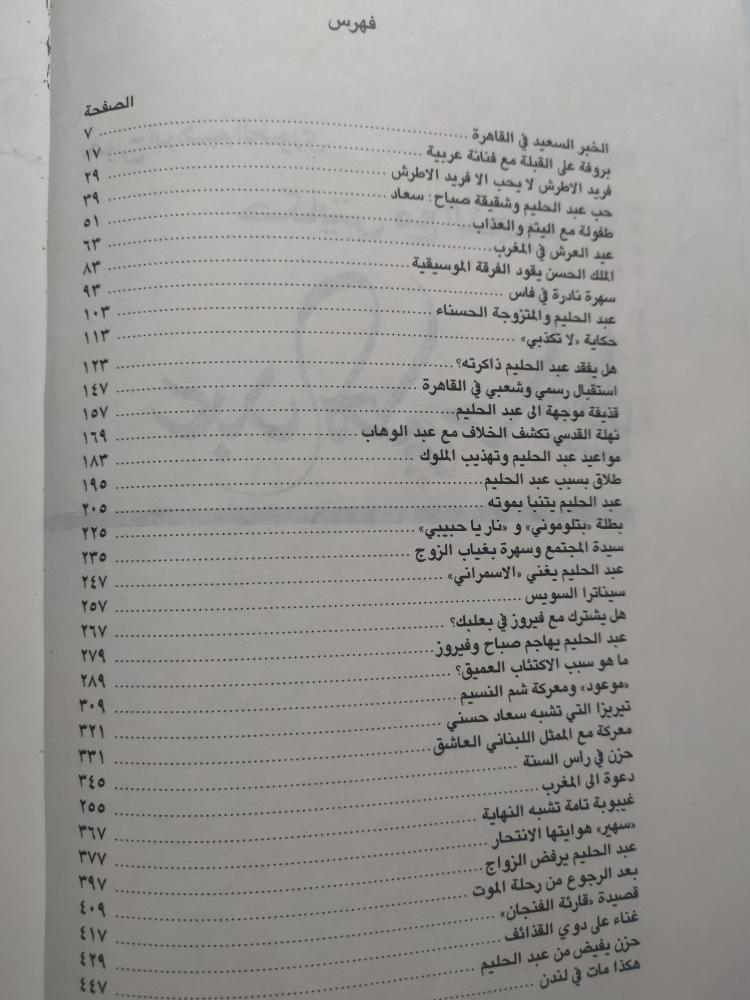 فهرس
الصفحة
الخبر السعيد في القاهرة ........ ٧
بروفة على القبلة مع فنانة عربية ........ ١٧
فريد الاطرش لا يحب الا فريد الاطرش ........ ٢٩
حب عبد الحليم وشقيقة صباح: سعاد ........ ٣٩
طفولة مع اليتم والعذاب ........ ٥١
عيد العرش في المغرب ........ ٦٣
الملك الحسن يقود الفرقة الموسيقية ........ ٨٣
سهرة نادرة في فاس ........ ٩٣
عبد الحليم والمتزوجة الحسناء ........ ١٠٣
حكاية «لا تكذبي» ........ ١١٣
هل يفقد عبد الحليم ذاكرته؟ ........ ١٢٣
استقبال رسمي وشعبي في القاهرة ........ ١٤٧
قذيفة موجهة الى عبد الحليم ........ ١٥٧
نهلة القدسي تكشف الخلاف مع عبد الوهاب ........ ١٦٩
مواعيد عبد الحليم وتهذيب الملوك ........ ١٨٣
طلاق بسبب عبد الحليم ........ ١٩٥
عبد الحليم يتنبأ بموته ........ ٢٠٥
بطلة «بتلوموني» و «نار يا حبيبي» ........ ٢٢٥
سيدة المجتمع وسهرة بغياب الزوج ........ ٢٣٥
عبد الحليم يغني «الاسمراني» ........ ٢٤٧
سيناترا السويس ........ ٢٥٧
هل يشترك مع فيروز في بعلبك؟ ........ ٢٦٧
عبد الحليم يهاجم صباح وفيروز ........ ٢٧٩
ما هو سبب الاكتئاب العميق؟ ........ ٢٨٩
«موعود» ومعركة شم النسيم ........ ٣٠٩
تيريزا التي تشبه سعاد حسني ........ ٣٢١
معركة مع الممثل اللبناني العاشق ........ ٣٣١
حزن في رأس السنة ........ ٣٤٥
دعوة الى المغرب ........ ٢٥٥
غيبوبة تامة تشبه النهاية ........ ٣٦٧
«سهير» هوايتها الانتحار ........ ٣٧٧
عبد الحليم يرفض الزواج ........ ٣٩٧
بعد الرجوع من رحلة الموت ........ ٤٠٩
قصيدة «قارئة الفنجان» ........ ٤١٧
غناء على دوي القذائف ........ ٤٢٩
حزن يفيض من عبد الحليم ........ ٤٤٧
هكذا مات في لندن ........